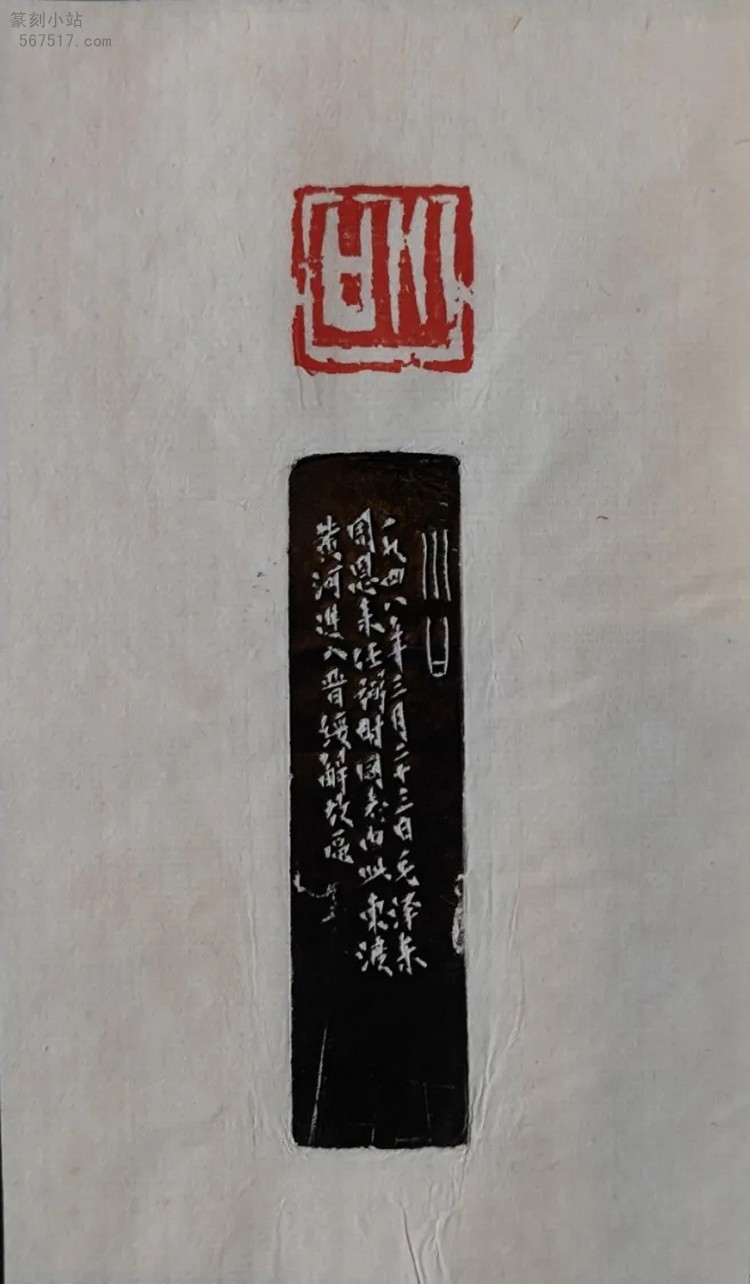 篆刻小站
567517.com
川口
川口
一九四八年三月二十三日毛泽东
周恩来任弼时同志由此东渡
黄河進入晋绥解放区